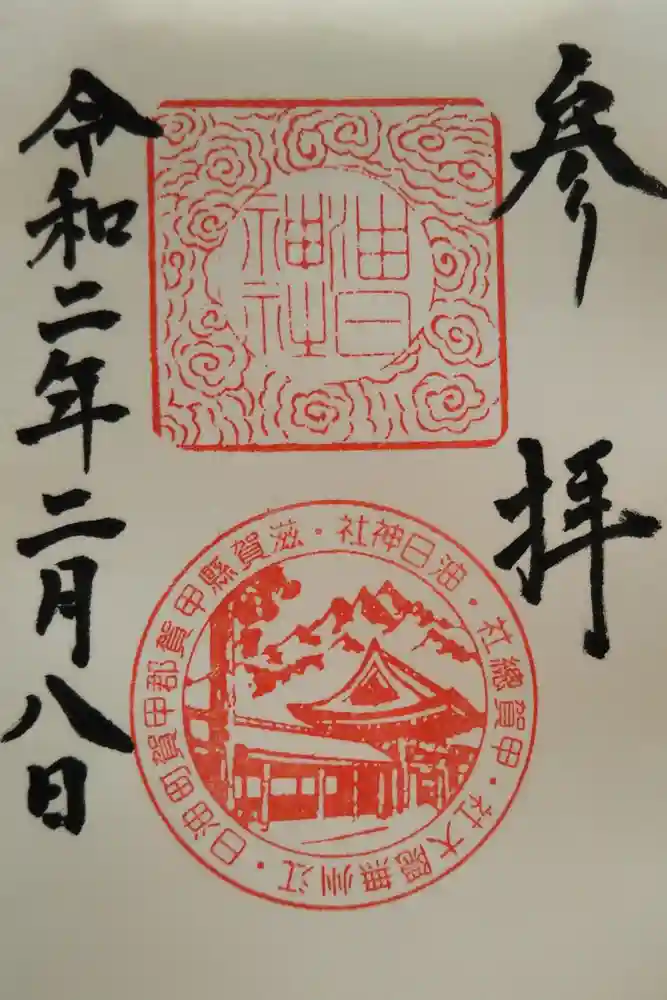 参拝
油日
神社
油日神社・滋賀縣甲賀郡甲賀町油日・江州無隠大社・甲賀總社・
令和二年二月八日